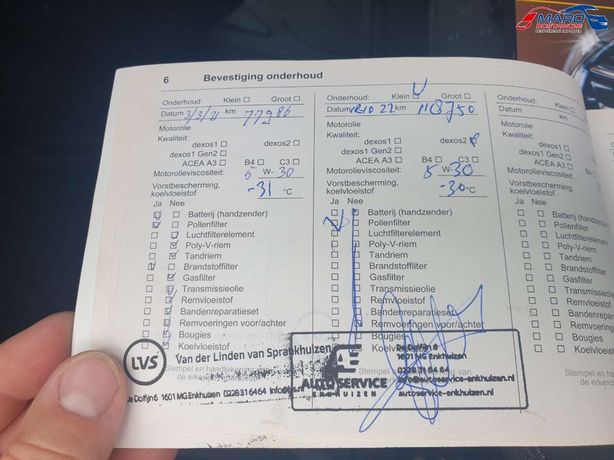 MARO
6 Bevestiging onderhoud
Onderhoud: Klein Groot
Datum 3/3/21 km 77986
Motorolie
Kwaliteit:
dexos1 dexos2
dexos1 Gen2
ACEA A3 B4 C3
Motorolieviscositeit: 5 W-30
Vorstbescherming,
koelvloeistof -31 °C
Ja Nee
Batterij (handzender)
Pollenfilter
Luchtfilterelement
Poly-V-riem
Tandriem
Brandstoffilter
Gasfilter
Transmissieolie
Remvloeistof
Bandenreparatieset
Remvoeringen voor/achter
Bougies
Koelvloeistof
LVS Van der Linden van Sprankhuizen
De Dolfijn 6 1601 MG Enkhuizen 0228 316464
Onderhoud: Klein Groot
Datum 10 22 km 118750
Motorolie
Kwaliteit:
dexos1 dexos2
dexos1 Gen2
ACEA A3 B4 C3
Motorolieviscositeit: 5 W-30
Vorstbescherming,
koelvloeistof -30 °C
Ja Nee
Batterij (handzender)
Pollenfilter
Luchtfilterelement
Poly-V-riem
Tandriem
Brandstoffilter
Gasfilter
Transmissieolie
Remvloeistof
Bandenreparatieset
Remvoeringen voor/achter
Bougies
Koelvloeistof
AUTO SERVICE
ENKHUIZEN
De Dolfijn 6
1601 MG Enkhuizen
0228 31 64 64
info@autoservice-enkhuizen.nl
autoservice-enkhuizen.nl
Onderhoud:
Datum
Motorolie
Kwaliteit:
dexos1
dexos1 Gen2
ACEA A3
Motorolieviscositeit:
Vorstbescherming,
koelvloeistof
Ja Nee
Batterij
Pollenfilter
Luchtfilter
Poly-V-riem
Tandriem
Brandstof
Gasfilter
Transmissie
Remvloeistof
Bandenrep
Remvoering
Bougies
Koelvloeistof